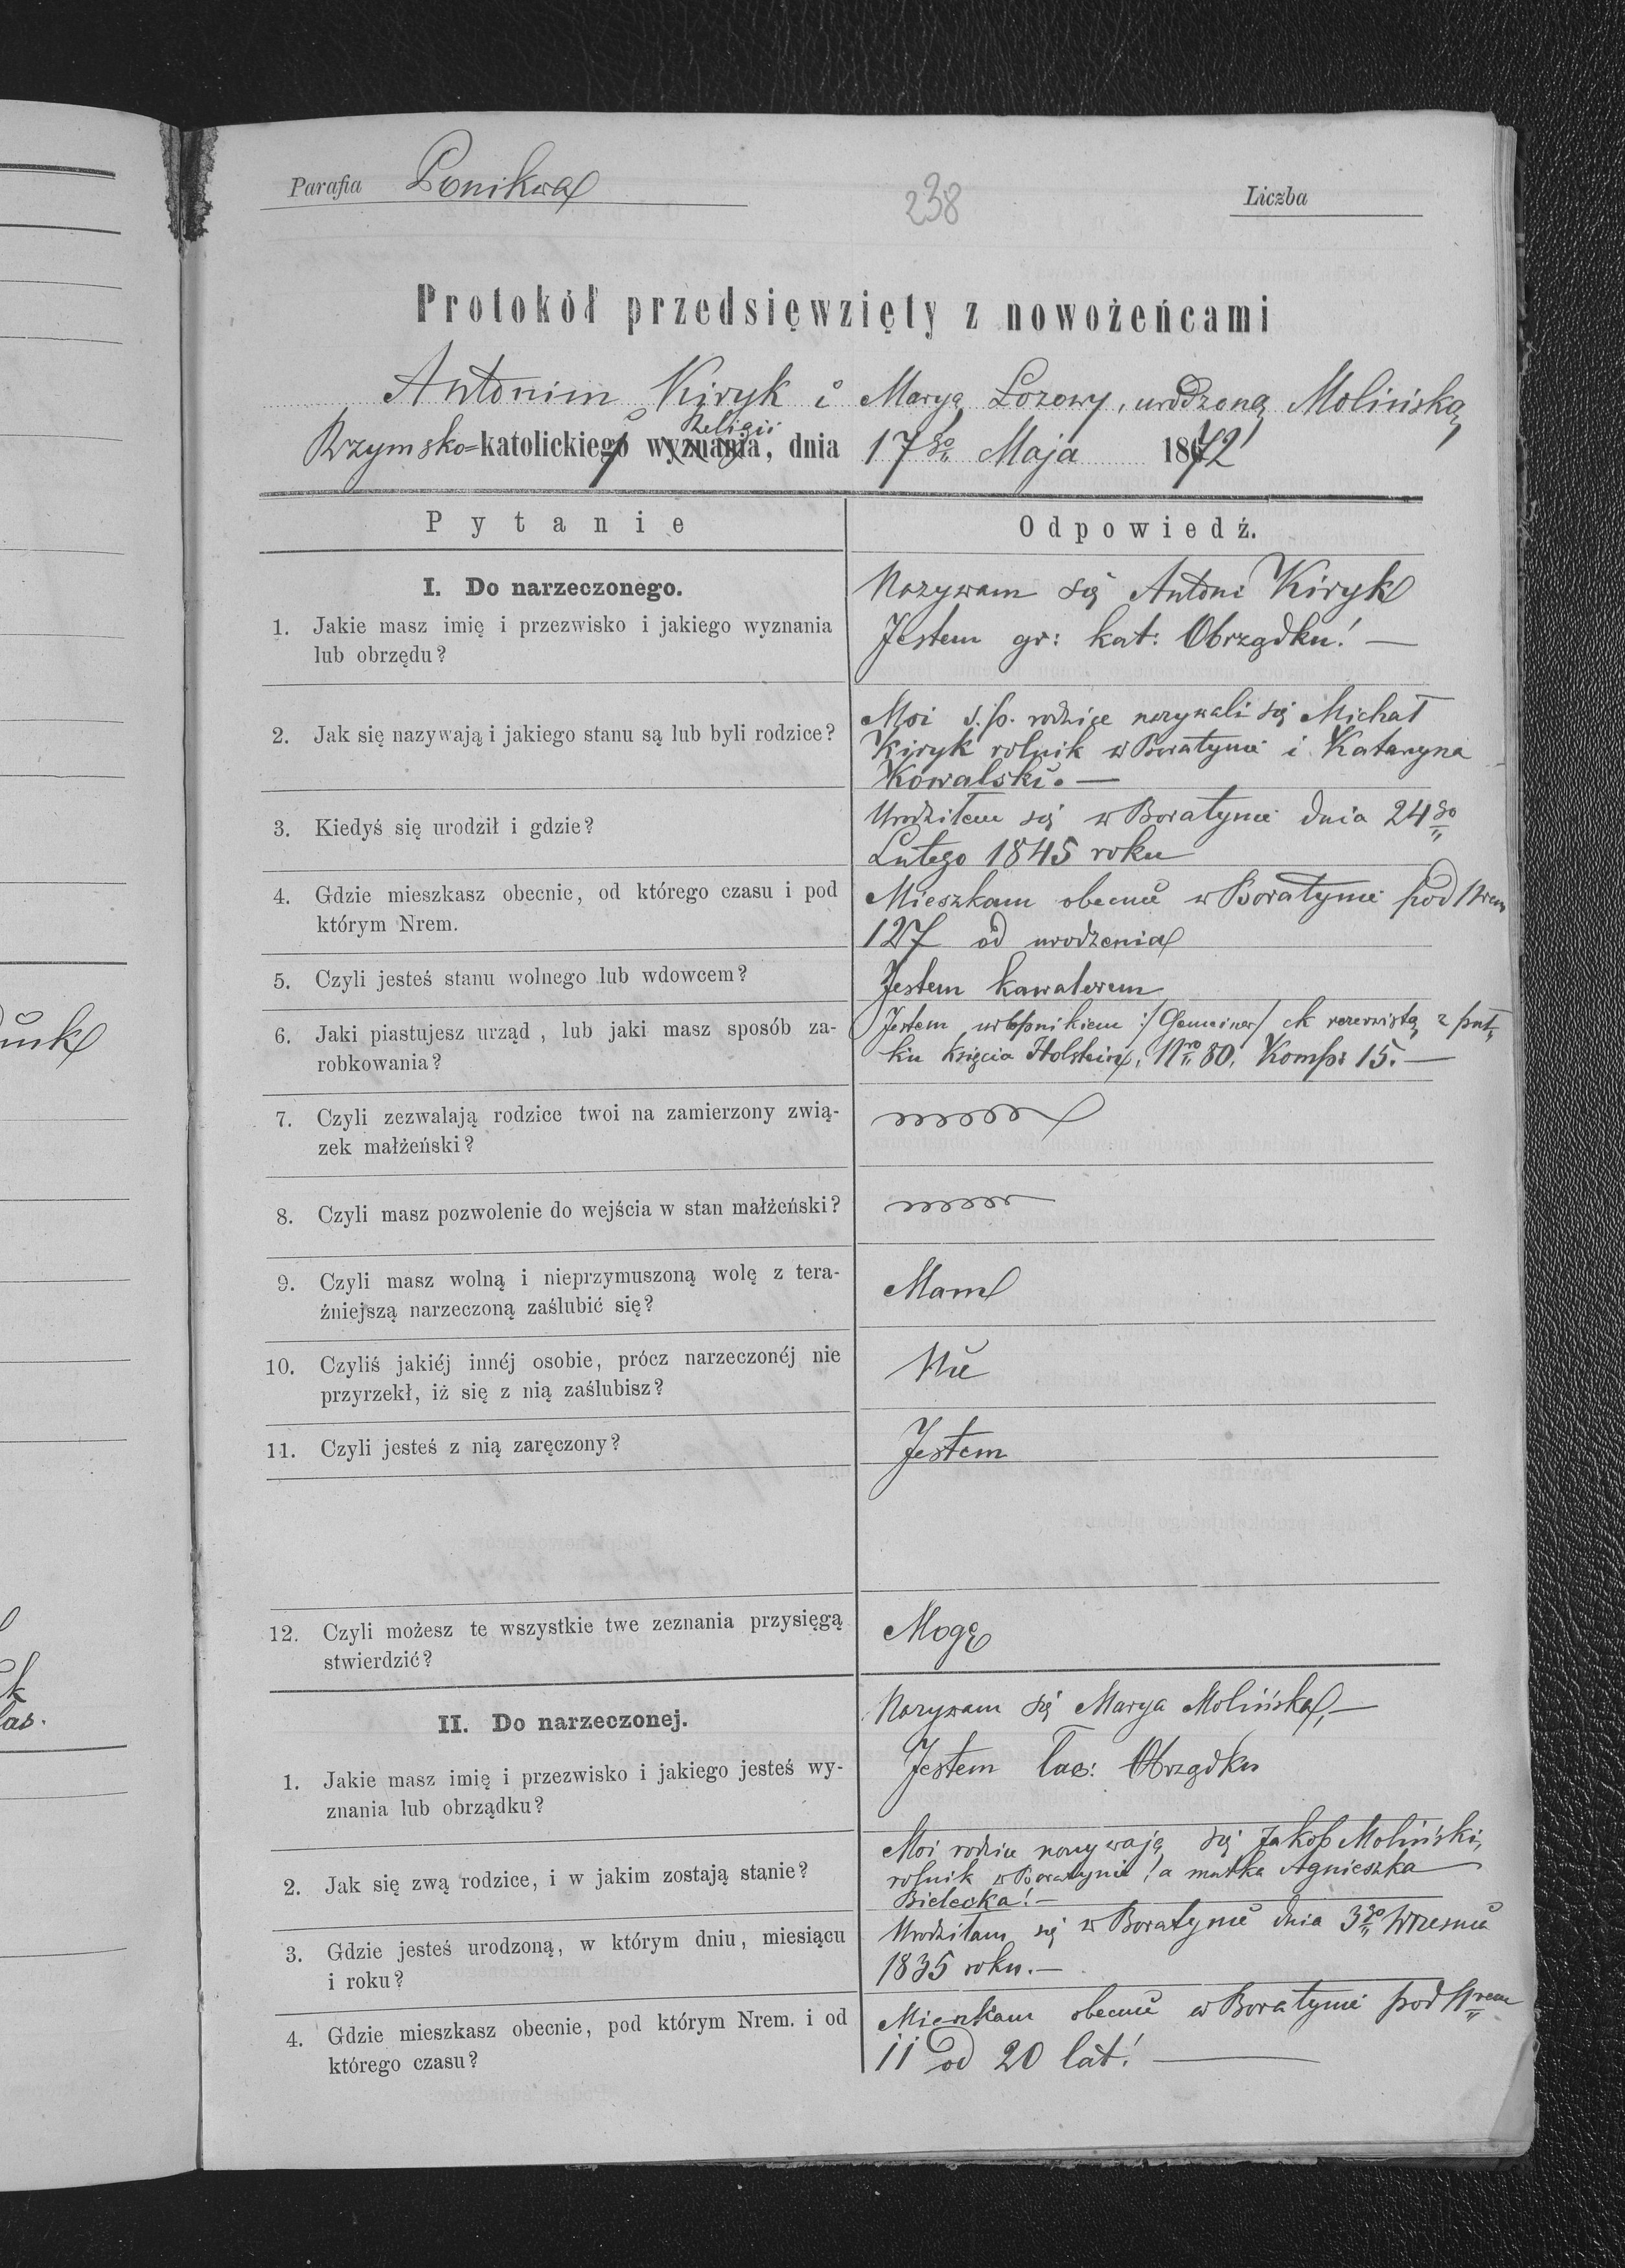 Parafia Ponikwa
238
Liczba
Protokół przedsięwzięty z nowożeńcami
Antonim Kiryk i Maryą Lozowy, urodzoną Molińską
Rzymsko=katolickiego wyznania, Religii dnia 17go Maja 1872
Pytanie
Odpowiedź.
I. Do narzeczonego.
1. Jakie masz imię i przezwisko i jakiego wyznania
lub obrzędu?
Nazywam się Antoni Kiryk
Jestem gr: kat: Obrządku! —
2. Jak się nazywają i jakiego stanu są lub byli rodzice?
Moi ś.p. rodzice nazywali się Michał
Kiryk rolnik w Boratynie i Katarzyna
Kowalski. —
3. Kiedyś się urodził i gdzie?
Urodziłem się w Boratynie dnia 24go
Lutego 1845 roku
4. Gdzie mieszkasz obecnie, od którego czasu i pod
którym Nrem.
Mieszkam obecnie w Boratynie pod Nrem
127 od urodzenia
5. Czyli jesteś stanu wolnego lub wdowcem?
Jestem kawalerem
6. Jaki piastujesz urząd, lub jaki masz sposób za-
robkowania?
Jestem urlopnikiem :/Gemeiner/ ck rezerwistą z puł-
ku księcia Holstein, Nro 80, Komp: 15. —
7. Czyli zezwalają rodzice twoi na zamierzony zwią-
zek małżeński?
8. Czyli masz pozwolenie do wejścia w stan małżeński?
9. Czyli masz wolną i nieprzymuszoną wolę z tera-
źniejszą narzeczoną zaślubić się?
Mam
10. Czyliś jakiéj innéj osobie, prócz narzeczonéj nie
przyrzekł, iż się z nią zaślubisz?
Nie
11. Czyli jesteś z nią zaręczony?
Jestem
12. Czyli możesz te wszystkie twe zeznania przysięgą
stwierdzić?
Mogę
II. Do narzeczonej.
1. Jakie masz imię i przezwisko i jakiego jesteś wy-
znania lub obrządku?
Nazywam się Marya Molińska, —
Jestem łac: Obrządku
2. Jak się zwą rodzice, i w jakim zostają stanie?
Moi rodzice nazywają się Jakób Moliński,
rolnik w Boratynie! a matka Agnieszka
Bielecka! —
3. Gdzie jesteś urodzoną, w którym dniu, miesiącu
i roku?
Urodziłam się w Boratynie dnia 3go Wrzesnia
1835 roku. —
4. Gdzie mieszkasz obecnie, pod którym Nrem. i od
którego czasu?
Mieszkam obecnie w Boratynie pod Nrem
11 od 20 lat! —